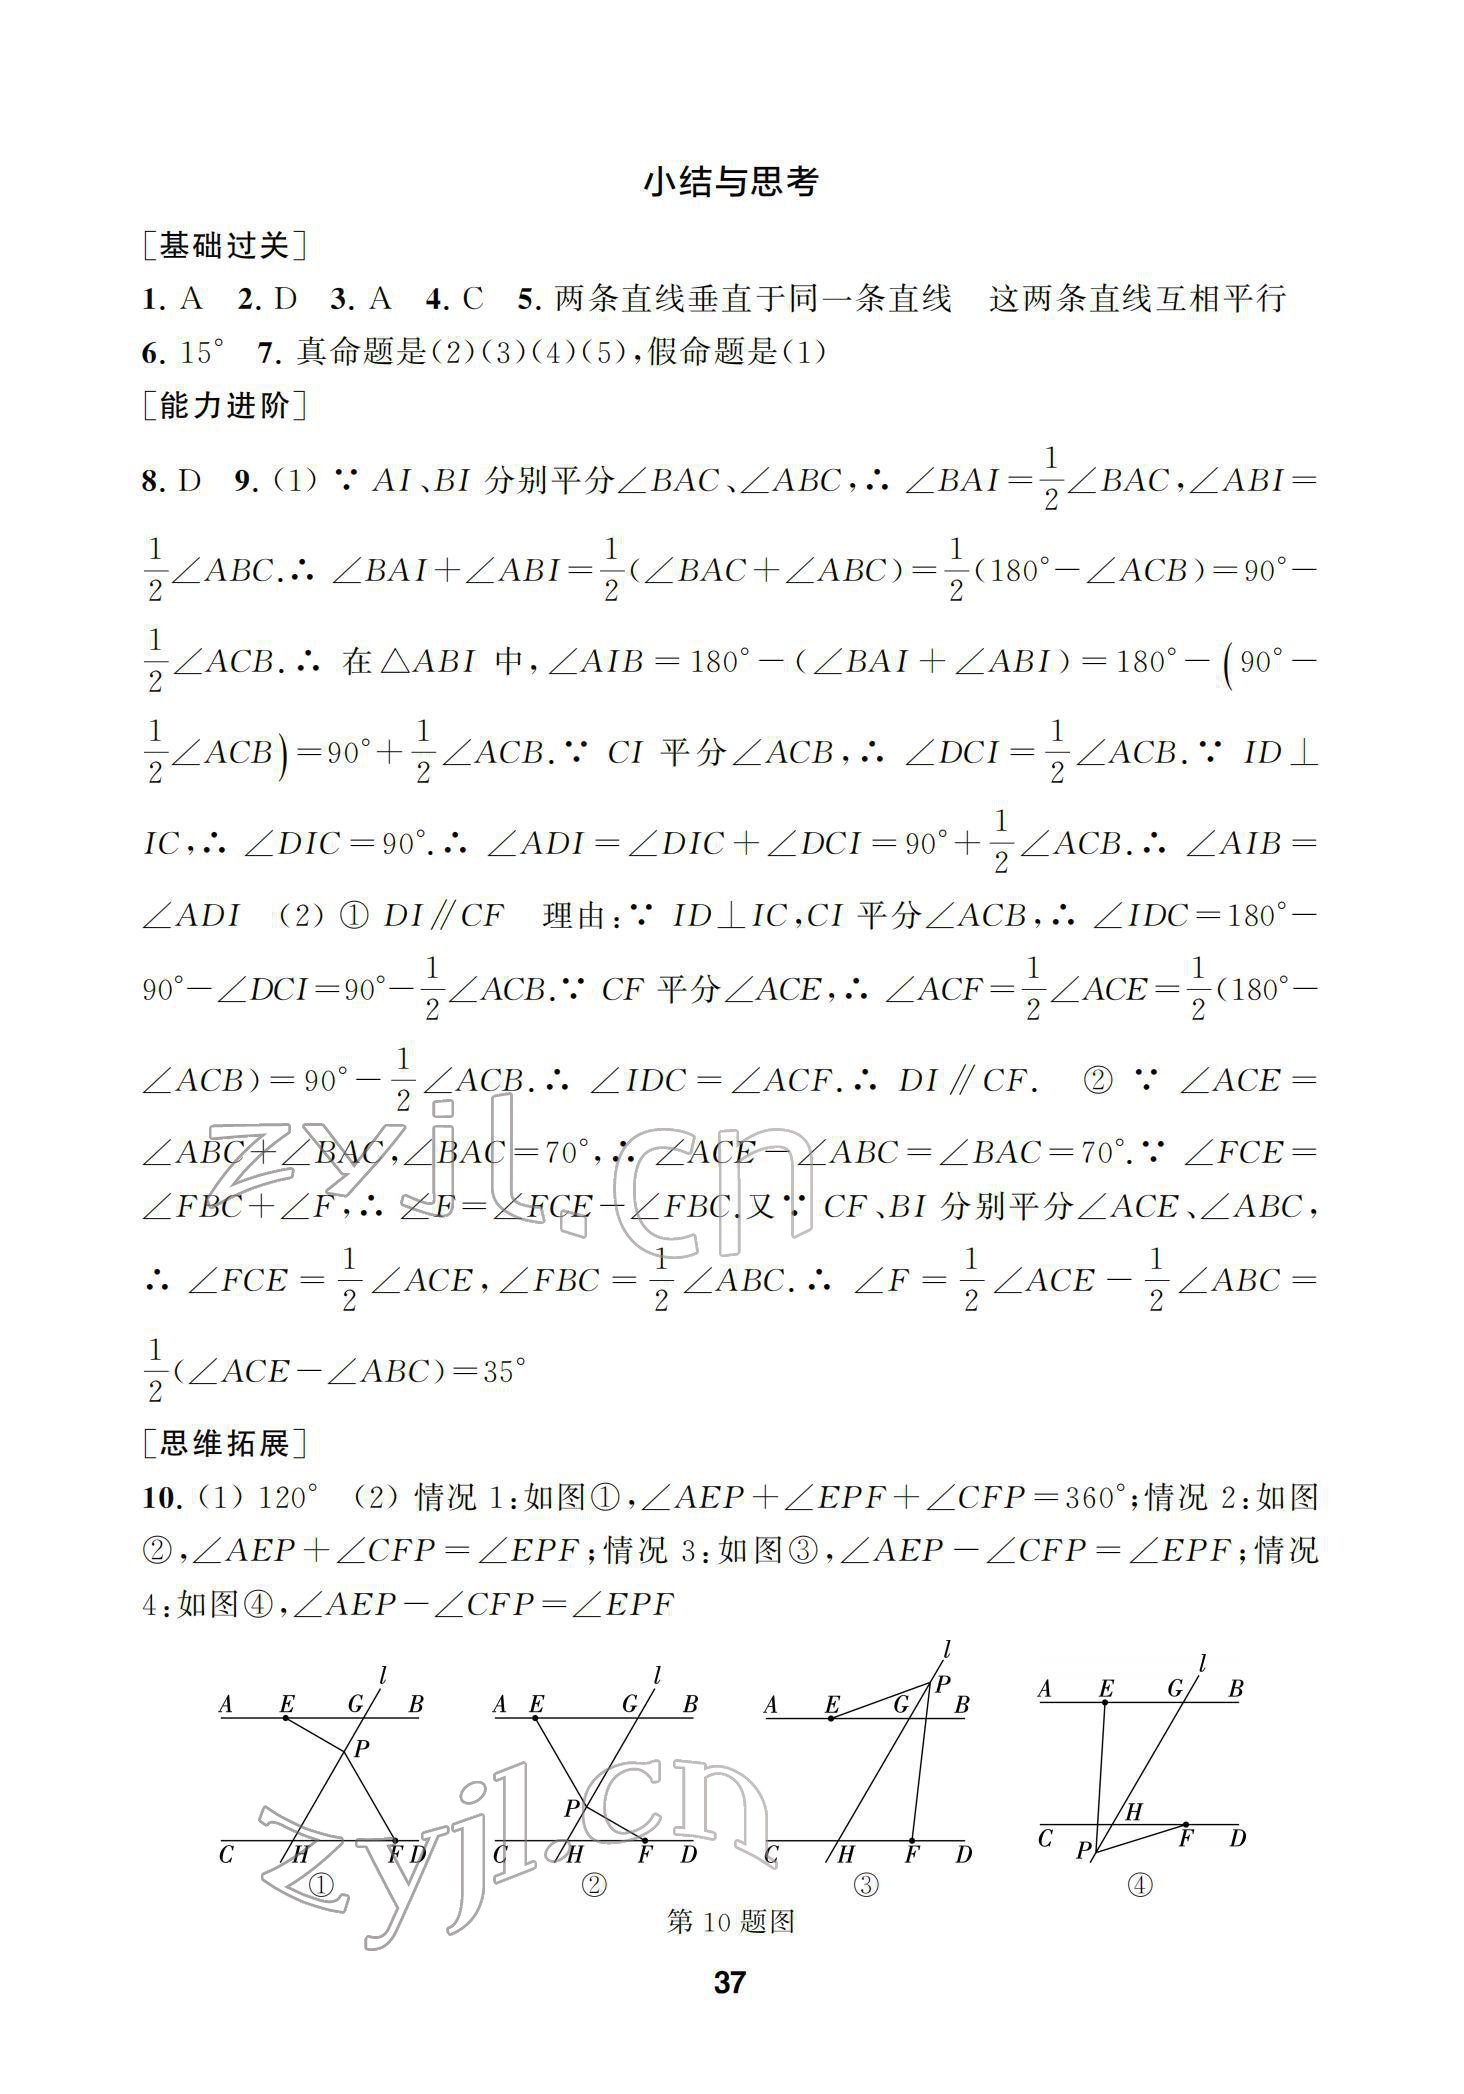 小结与思考
[基础过关]
1. A  2. D  3. A  4. C  5. 两条直线垂直于同一条直线  这两条直线互相平行
6. 15°  7. 真命题是(2)(3)(4)(5),假命题是(1)
[能力进阶]
8. D  9. (1) ∵ AI、BI 分别平分∠BAC、∠ABC,∴ ∠BAI=1/2∠BAC,∠ABI=
1/2∠ABC.∴ ∠BAI+∠ABI=1/2(∠BAC+∠ABC)=1/2(180°-∠ACB)=90°-
1/2∠ACB.∴ 在△ABI 中,∠AIB=180°-(∠BAI+∠ABI)=180°-(90°-
1/2∠ACB)=90°+1/2∠ACB.∵ CI 平分∠ACB,∴ ∠DCI=1/2∠ACB.∵ ID⊥
IC,∴ ∠DIC=90°.∴ ∠ADI=∠DIC+∠DCI=90°+1/2∠ACB.∴ ∠AIB=
∠ADI  (2) ① DI∥CF  理由:∵ ID⊥IC,CI 平分∠ACB,∴ ∠IDC=180°-
90°-∠DCI=90°-1/2∠ACB.∵ CF 平分∠ACE,∴ ∠ACF=1/2∠ACE=1/2(180°-
∠ACB)=90°-1/2∠ACB.∴ ∠IDC=∠ACF.∴ DI∥CF.  ② ∵ ∠ACE=
∠ABC+∠BAC,∠BAC=70°,∴ ∠ACE-∠ABC=∠BAC=70°.∵ ∠FCE=
∠FBC+∠F,∴ ∠F=∠FCE-∠FBC.又∵ CF、BI 分别平分∠ACE、∠ABC,
∴ ∠FCE=1/2∠ACE,∠FBC=1/2∠ABC.∴ ∠F=1/2∠ACE-1/2∠ABC=
1/2(∠ACE-∠ABC)=35°
[思维拓展]
10. (1) 120°  (2) 情况 1:如图①,∠AEP+∠EPF+∠CFP=360°;情况 2:如图
②,∠AEP+∠CFP=∠EPF;情况 3:如图③,∠AEP-∠CFP=∠EPF;情况
4:如图④,∠AEP-∠CFP=∠EPF
A E G B l P C H F D ①
A E G B l P C H F D ②
A E G B l P C H F D ③
A E G B l P C H F D ④
第 10 题图
37
zyjl.cn
zyjl.cn